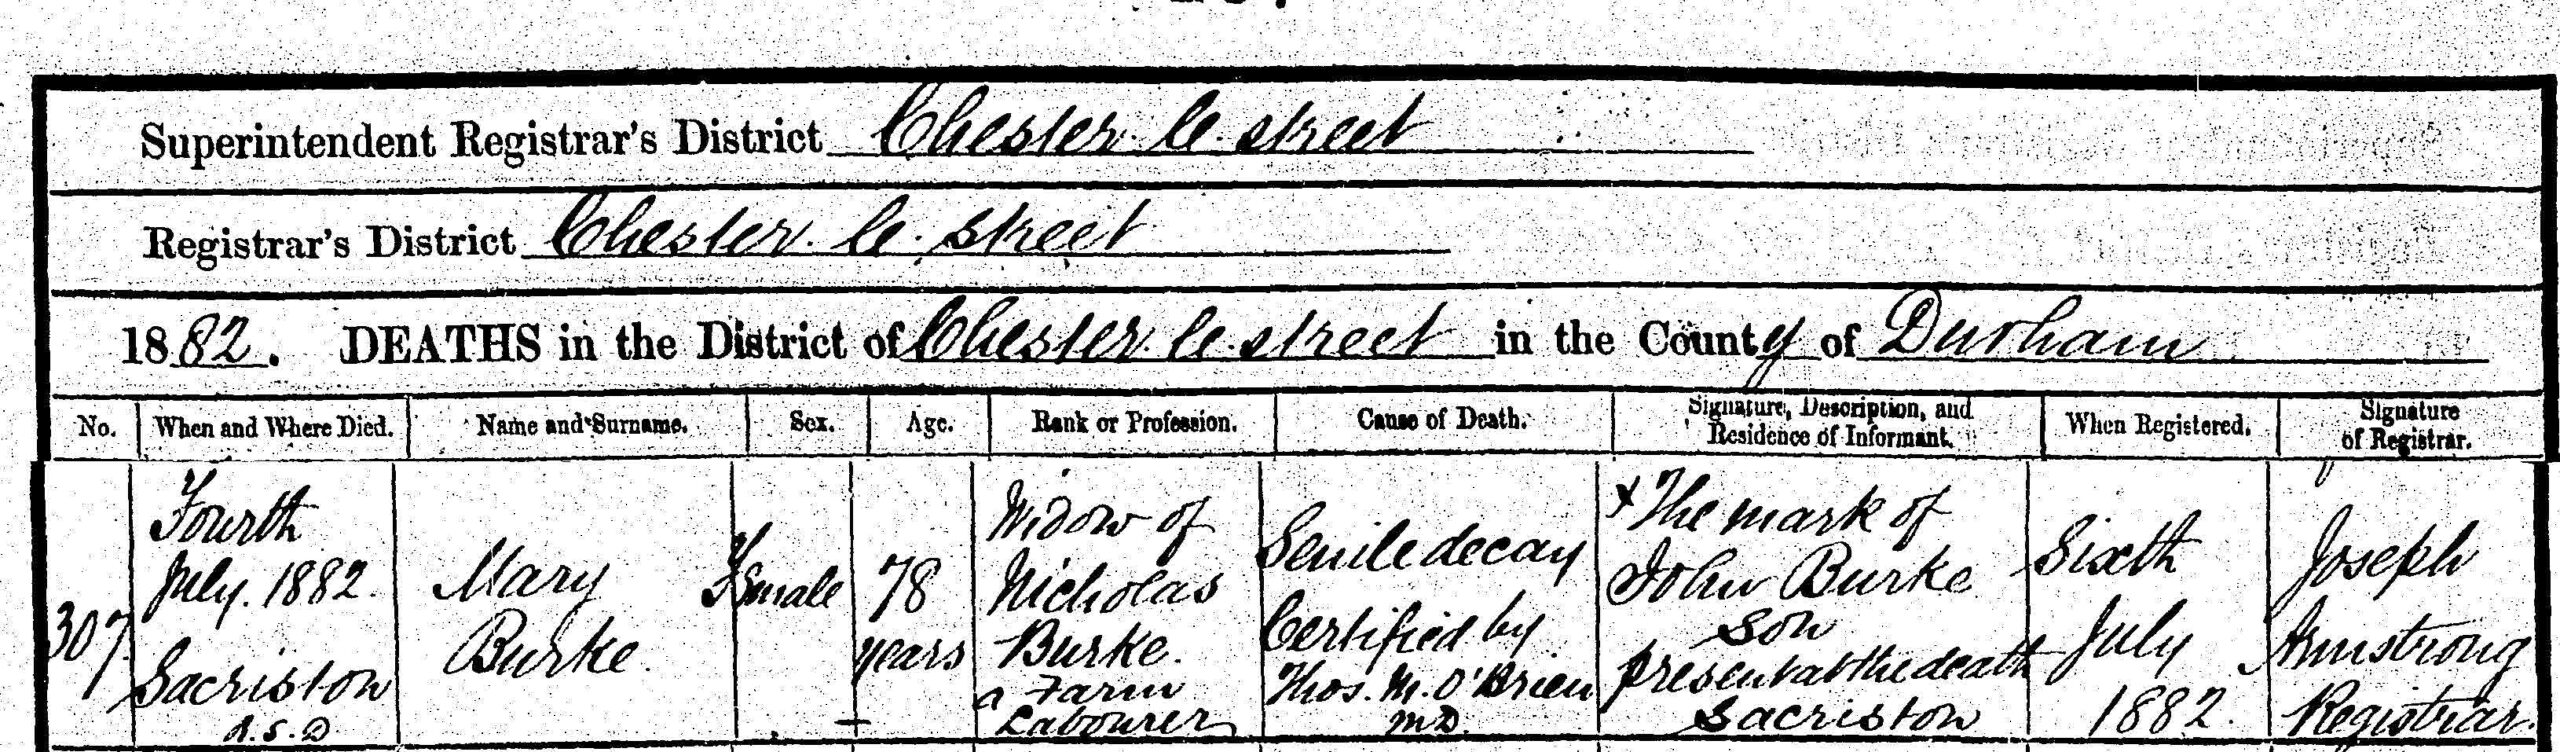 Superintendent Registrar's District Chester le Street
Registrar's District Chester. le. Street
1882. DEATHS in the District of Chester le Street in the County of Durham
No. When and Where Died. Name and Surname. Sex. Age. Rank or Profession. Cause of Death. Signature, Description, and Residence of Informant. When Registered. Signature of Registrar.
307
Fourth
July. 1882.
Sacriston
R.S.D
Mary
Burke.
Female
78
years
Widow of
Nicholas
Burke.
a Farm
Labourer
Senile decay
Certified by
Thos. M. O'Brien
M.D.
x The mark of
John Burke
Son
present at the death
Sacriston
Sixth
July
1882.
Joseph
Armstrong
Registrar.